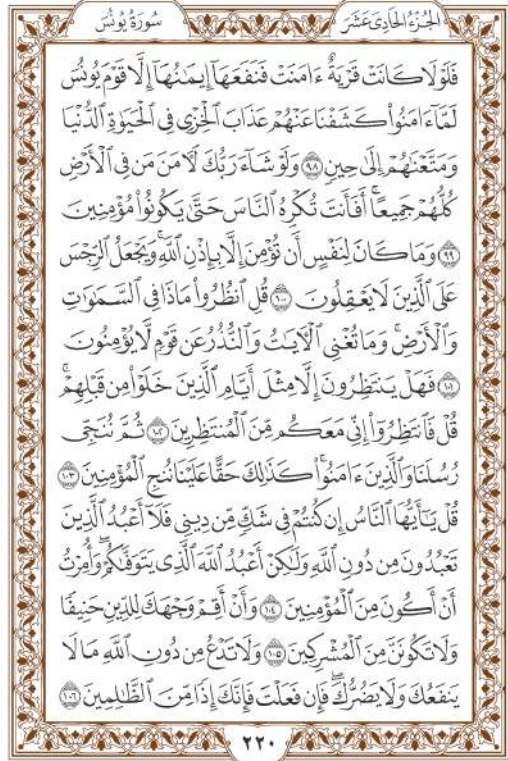 الجُزْءُ الحَادِىَ عَشَرَ
سُورَةُ يُونُسَ
فَلَوْلَا كَانَتْ قَرْيَةٌ ءَامَنَتْ فَنَفَعَهَآ إِيمَـٰنُهَآ إِلَّا قَوْمَ يُونُسَ
لَمَّآ ءَامَنُوا۟ كَشَفْنَا عَنْهُمْ عَذَابَ ٱلْخِزْىِ فِى ٱلْحَيَوٰةِ ٱلدُّنْيَا
وَمَتَّعْنَـٰهُمْ إِلَىٰ حِينٍ ٩٨ وَلَوْ شَآءَ رَبُّكَ لَـَٔامَنَ مَن فِى ٱلْأَرْضِ
كُلُّهُمْ جَمِيعًا ۚ أَفَأَنتَ تُكْرِهُ ٱلنَّاسَ حَتَّىٰ يَكُونُوا۟ مُؤْمِنِينَ
٩٩ وَمَا كَانَ لِنَفْسٍ أَن تُؤْمِنَ إِلَّا بِإِذْنِ ٱللَّهِ ۚ وَيَجْعَلُ ٱلرِّجْسَ
عَلَى ٱلَّذِينَ لَا يَعْقِلُونَ ١٠٠ قُلِ ٱنظُرُوا۟ مَاذَا فِى ٱلسَّمَـٰوَٰتِ
وَٱلْأَرْضِ ۚ وَمَا تُغْنِى ٱلْـَٔايَـٰتُ وَٱلنُّذُرُ عَن قَوْمٍ لَّا يُؤْمِنُونَ
١٠١ فَهَلْ يَنتَظِرُونَ إِلَّا مِثْلَ أَيَّامِ ٱلَّذِينَ خَلَوْا۟ مِن قَبْلِهِمْ ۚ
قُلْ فَٱنتَظِرُوٓا۟ إِنِّى مَعَكُم مِّنَ ٱلْمُنتَظِرِينَ ١٠٢ ثُمَّ نُنَجِّى
رُسُلَنَا وَٱلَّذِينَ ءَامَنُوا۟ ۚ كَذَٰلِكَ حَقًّا عَلَيْنَا نُنجِ ٱلْمُؤْمِنِينَ ١٠٣
قُلْ يَـٰٓأَيُّهَا ٱلنَّاسُ إِن كُنتُمْ فِى شَكٍّ مِّن دِينِى فَلَآ أَعْبُدُ ٱلَّذِينَ
تَعْبُدُونَ مِن دُونِ ٱللَّهِ وَلَـٰكِنْ أَعْبُدُ ٱللَّهَ ٱلَّذِى يَتَوَفَّىٰكُمْ ۖ وَأُمِرْتُ
أَنْ أَكُونَ مِنَ ٱلْمُؤْمِنِينَ ١٠٤ وَأَنْ أَقِمْ وَجْهَكَ لِلدِّينِ حَنِيفًا
وَلَا تَكُونَنَّ مِنَ ٱلْمُشْرِكِينَ ١٠٥ وَلَا تَدْعُ مِن دُونِ ٱللَّهِ مَا لَا
يَنفَعُكَ وَلَا يَضُرُّكَ ۖ فَإِن فَعَلْتَ فَإِنَّكَ إِذًا مِّنَ ٱلظَّـٰلِمِينَ ١٠٦
٢٢٠